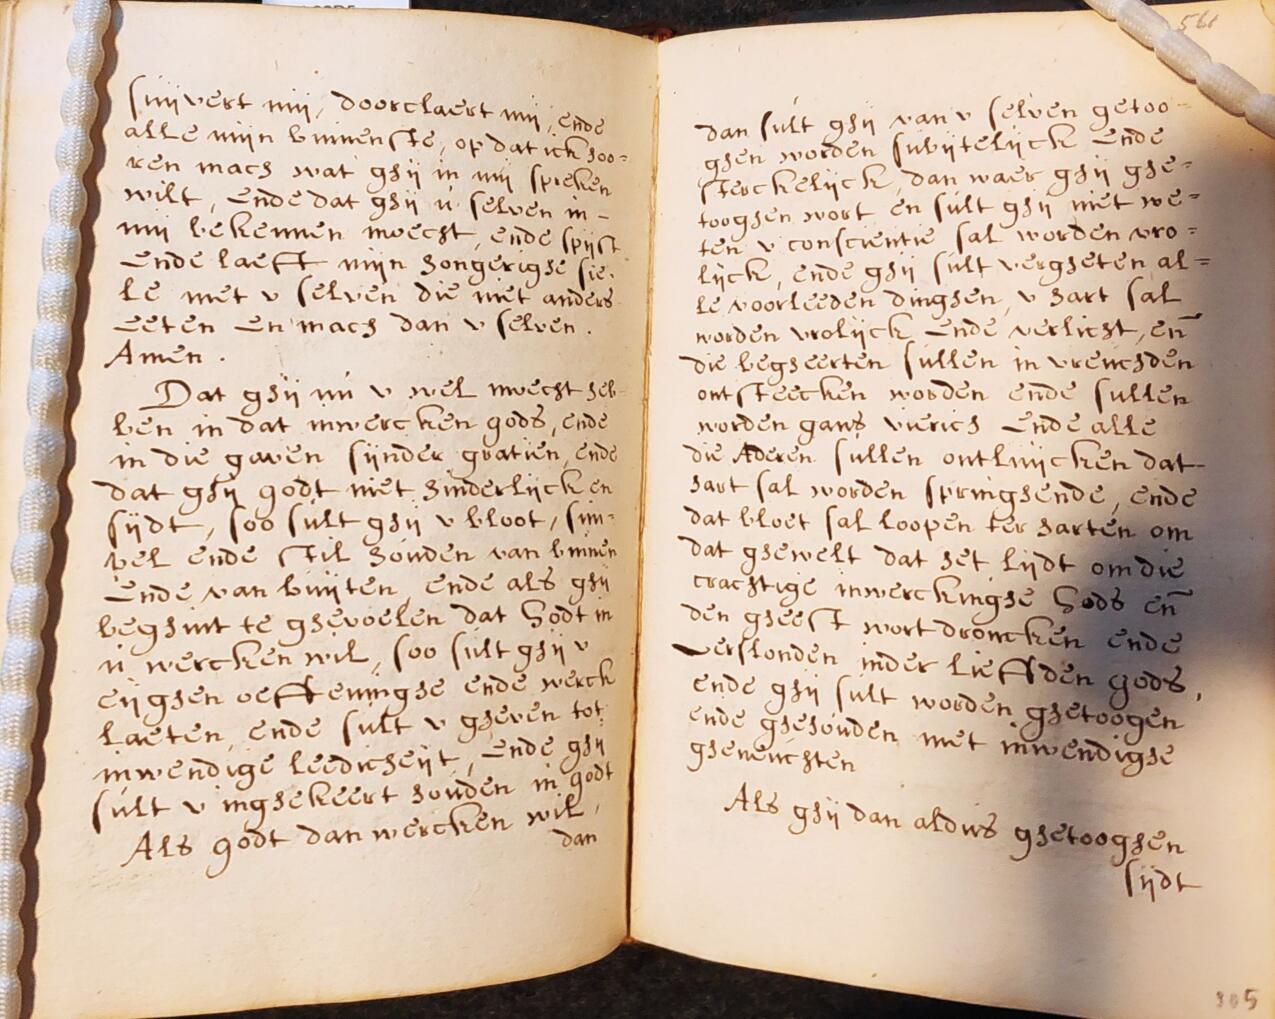 suijvert mij, doorclaert mij, ende
alle mijn binnenste, op dat ick hoo=
ren mach wat ghij in mij spreken
wilt, ende dat ghij u selven in-
mij bekennen moecht, ende spijst
ende laefft mijn hongerighe sie-
le met v selven die niet anders
eeten en mach dan v selven.
Amen.
Dat ghij nu v wel moecht heb-
ben in dat inwercken gods, ende
in die gaven sijnder gratien, ende
dat ghij godt niet hinderlijck en
sijdt, soo sult ghij v bloot, sim-
pel ende stil houden van binnen
ende van buijten, ende als ghij
beghint te ghevoelen dat Godt in
u wercken wil, soo sult ghij v
eijghen oeffeninghe ende werck
laeten, ende sult v gheven tot
inwendige leedicheijt, ende ghij
sult v inghekeert houden in godt
Als godt dan wercken wil,
dan
561
dan sult ghij van v selven getoo-
ghen worden subijtelijck ende
sterckelijck, dan waer ghij ghe=
tooghen wort en sult ghij niet we=
ten v conscientie sal worden vro=
lijck, ende ghij sult vergheten al=
le voorleeden dinghen, v hart sal
worden vrolijck ende verlicht, en̄
die begheerten sullen in vreuchden
ontsteecken worden ende sullen
worden gans vierich ende alle
die Aderen sullen ontluijcken dat
hart sal worden springhende, ende
dat bloet sal loopen ter harten om
dat ghewelt dat het lijdt om die
crachtige inwerckinghe Gods en̄
den gheest wort droncken ende
verslonden inder lieffden gods,
ende ghij sult worden ghetoogen
ende ghehouden met inwendighe
gheneuchten
Als ghij dan aldus ghetooghen
sijdt
305